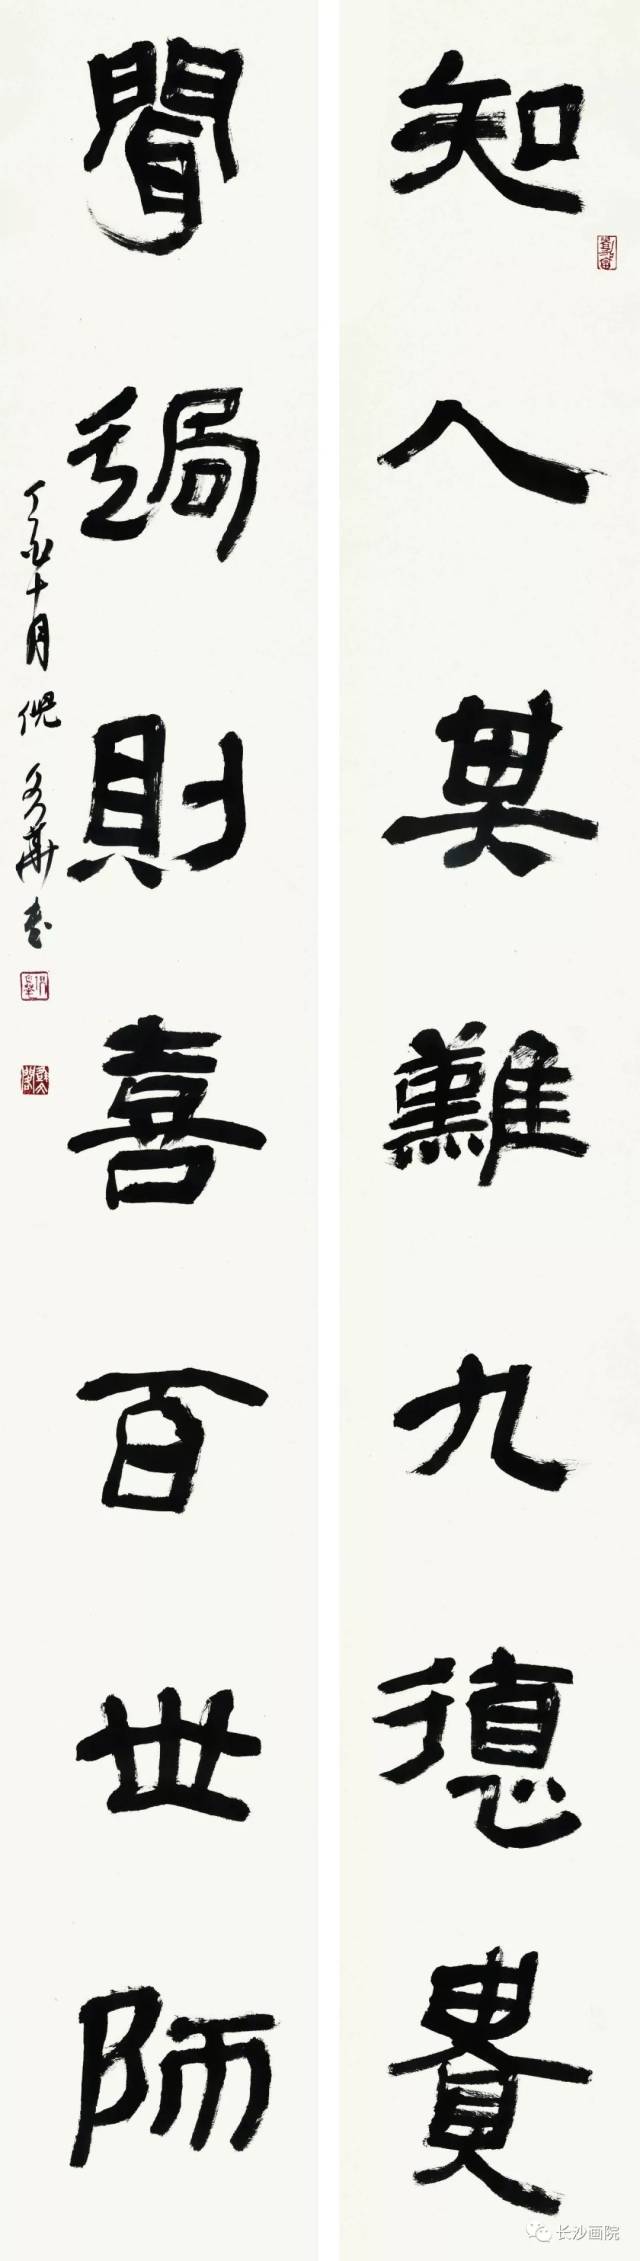 知人其難九德貴
聞過則喜百世師
丁酉十月 倪文華書
长沙画院